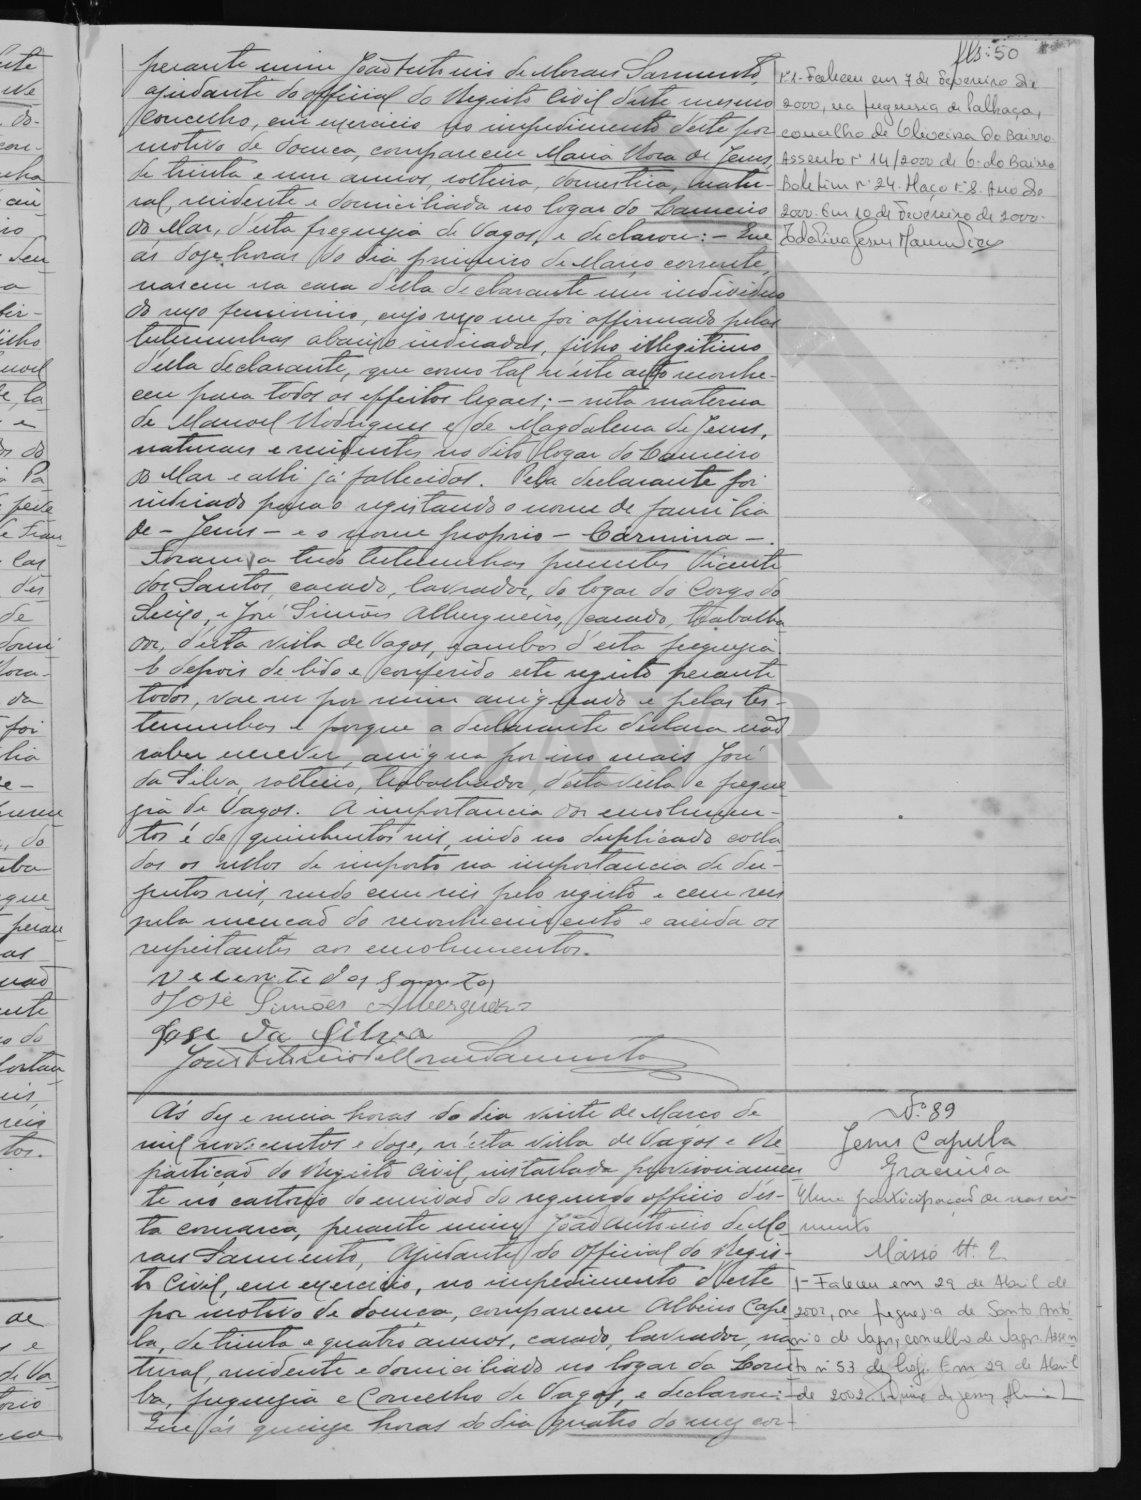 fls: 50
perante mim João Antonio de Moraes Sarmento,
ajudante do official do Registo Civil d'este mesmo
concelho, em exercicio no impedimento deste por
motivo de doença, compareceu Maria Rosa de Jesus,
de trinta e um annos, solteira, domestica, natu-
ral, residente e domiciliada no logar do Cameiro
do Mar, d'esta freguesia de Vagos, e declarou: - Que
ás doze horas do dia primeiro de Março corrente,
nasceu na casa d'ella declarante um individuo
do sexo feminino, cujo sexo me foi affirmado pelas
testemunhas abaixo indicadas, filho illegitimo
d'ella declarante, que como tal n'este acto reconhe-
ceu para todos os effeitos legaes; - neta materna
de Manoel Rodrigues e de Magdalena de Jesus,
naturaes e residentes no dito logar do Cameiro
do Mar e alli já fallecidos. Pela declarante foi
indicado para o registando o nome de familia
de - Jesus - e o nome proprio - Carmina -.
Foram a tudo testemunhas presentes Vicente
dos Santos, casado, lavrador, do logar do Corgo do
Seixo, e José Simões Albergueiro, casado, trabalha
dor, d'esta villa de Vagos, ambos d'esta freguesia.
E depois de lido e conferido este registo perante
todos, vae ser por mim assignado e pelas tes-
temunhas e porque a declarante declara não
saber escrever, assigna por isso mais José
da Silva, solteiro, trabalhador, d'esta villa e fregue
sia de Vagos. A importancia dos emolumen-
tos é de quinhentos reis, indo no duplicado colla
dos os sellos de imposto na importancia de du-
zentos reis, sendo cem reis pelo registo e cem reis
pela menção do reconhecimento e ainda os
respeitantes aos emolumentos.
Vecente dos Santos
José Simões Albergueiro
Jose da Silva
João Antonio de Moraes Sarmento
Nº 1 - Faleceu em 7 de Fevereiro de
2000, na freguesia de Palhaça,
concelho de Oliveira do Bairro.
Assento nº 14/2000 de O. do Bairro
Boletim nº 24. Maço nº 8. Ano de
2000. Em 10 de Fevereiro de 2000.
ADAVR
Ás dez e meia horas do dia vinte de Março de
mil novecentos e doze, n'esta villa de Vagos e Re
partição do Registo Civil, installada provisoriamen
te no cartorio do escrivão do segundo officio d'es-
ta comarca, perante mim João Antonio de Mo
raes Sarmento, Ajudante do official do Regis-
to Civil, em exercicio, no impedimento d'este
por motivo de doença, compareceu Albino Cape
la, de trinta e quatro annos, casado, lavrador, na
tural, residente e domiciliado no logar da
freguesia e Concelho de Vagos, e declarou:
Que ás quinze horas do dia quatro do mez cor-
Nº 89
Jesus Capella
Gracinda
Uma participação de nasci-
mento
Masso Nº 2
1 - Faleceu em 29 de Abril de
2002, na freguesia de Santo Antó
nio de Vagos, concelho de Vagos. Assen
to nº 53 de hoje. Em 29 de Abril
de 2002.